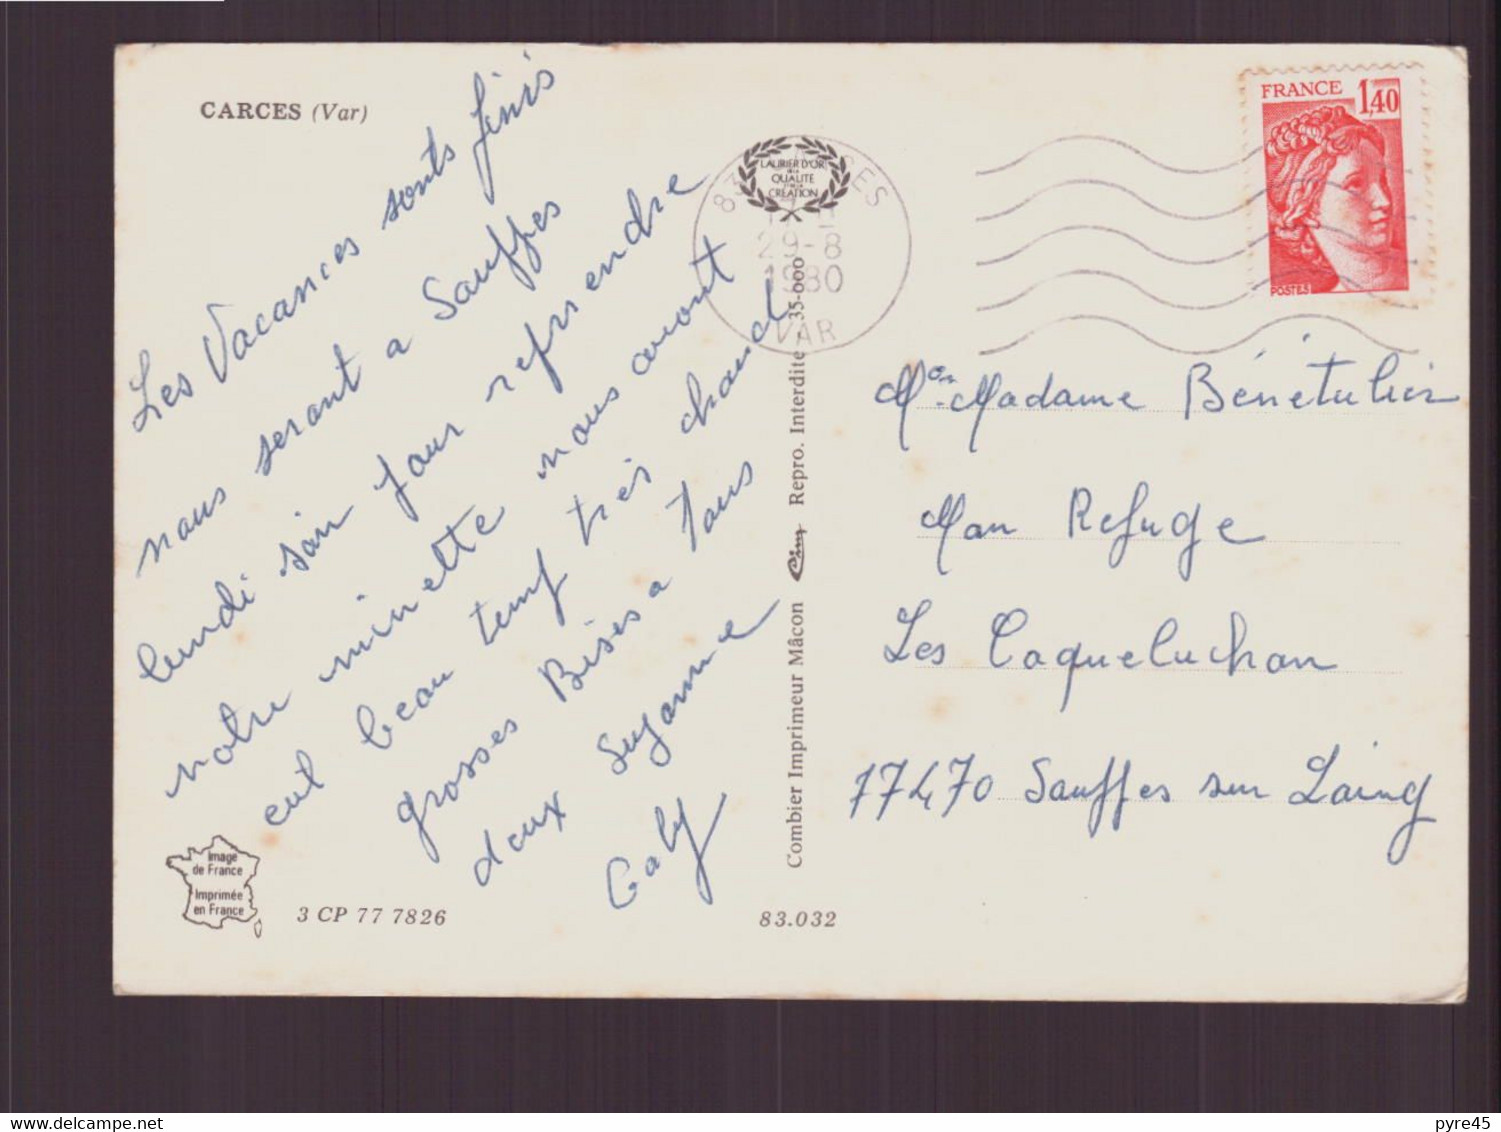 CARCES (Var)
Les Vacances sonts finis
nous seront a Sauffes
lundi soir pour reprendre
notre minette nous avont
eut beau temp très chaud
grosses Bises a tous
deux Suzanne
Gaby
Image
de France
Imprimée
en France
3 CP 77 7826
83.032
Combier Imprimeur Mâcon Cim Repro. Interdite 35-000
LAURIER D'OR
DE LA
QUALITE
ET DE LA
CREATION
29-8
1980
VAR
FRANCE 1,40
POSTES
Mr Madame Bénétulier
Mon Refuge
Les Coqueluchon
77470 Sauffes sur Laing
pyre45